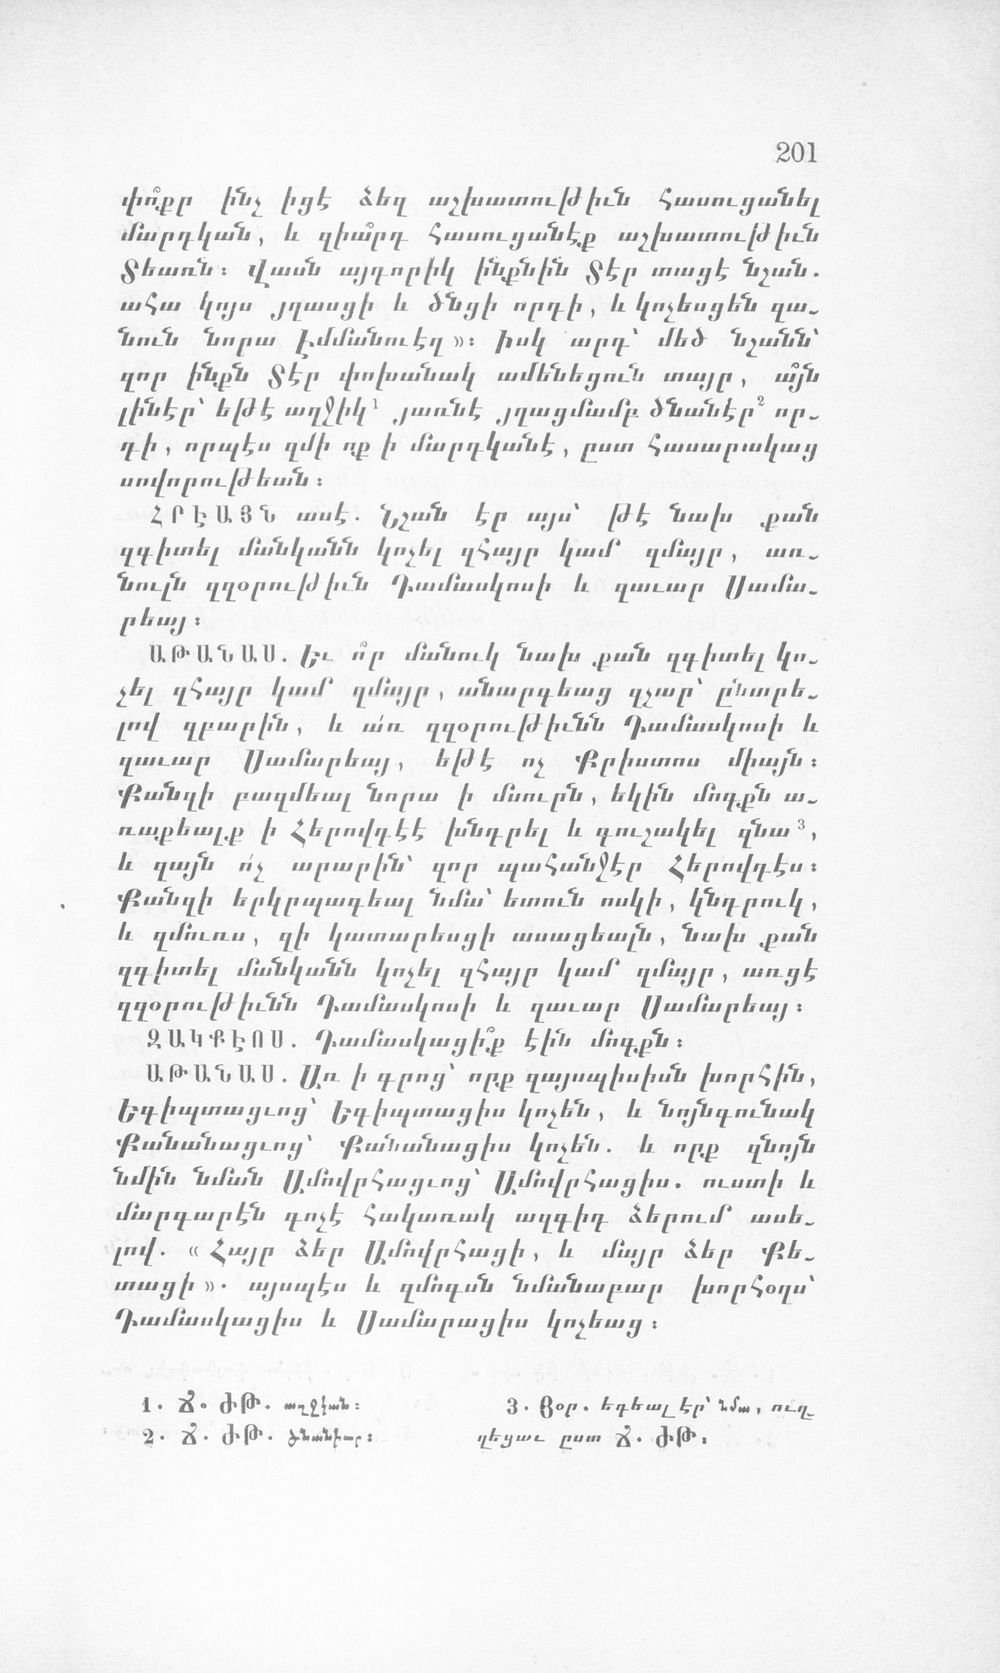 201
փո՞քր ինչ իցէ ձեզ աշխատութիւն հասուցանել
մարդկան, և զիա՞րդ հասուցանէք աշխատութիւն
Տեառն։ Վասն այդորիկ ինքնին Տէր տացէ նշան.
ահա կոյս յղասցի և ծնցի որդի, և կոչեսցեն զա-
նուն նորա Էմմանուէլ»։ իսկ արդ՝ մեծ նշանն՝
զոր ինքն Տէր փոխանակ ամենեցուն տայր, ա՞յն
լինէր՝ եթէ աղջիկ¹ յառնէ յղացմամբ ծնանէր² որ-
դի, որպէս զմի ոք ի մարդկանէ, ըստ հասարակաց
սովորութեան։
ՀՐԷԱՅՆ ասէ. Նշան էր այս՝ թէ նախ քան
զգիտել մանկանն կոչել զհայր կամ զմայր, առ-
նուլն զզօրութիւն Դամասկոսի և զաւար Սամա-
րեայ։
ԱԹԱՆԱՍ. Եւ ո՞ր մանուկ նախ քան զգիտել կո-
չել զհայր կամ զմայր, անարգեաց զչար՝ ընտրե-
լով զբարին, և ա՛ռ զզօրութիւնն Դամասկոսի և
զաւար Սամարեայ, եթէ ոչ Քրիստոս միայն։
Քանզի բազմեալ նորա ի մսուրն, եկին մոգքն ա-
ռաքեալք ի Հերովդէէ խնդրել և գուշակել զնա³,
և զայն ո՛չ արարին՝ զոր պահանջէր Հերովդէս։
Քանզի երկրպագեալ նմա՝ ետուն ոսկի, կնդրուկ,
և զմուռս, զի կատարեսցի ասացեալն, նախ քան
զգիտել մանկանն կոչել զհայր կամ զմայր, առցէ
զզօրութիւնն Դամասկոսի և զաւար Սամարեայ։
ԶԱԿՔԷՈՍ. Դամասկացի՞ք էին մոգքն։
ԱԹԱՆԱՍ. Առ ի գրոց՝ որք զայսպիսիսն խորհին,
Եգիպտացւոց՝ Եգիպտացիս կոչեն, և նոյնգունակ
Քանանացւոց՝ Քանանացիս կոչեն. և որք զնոյն
նմին նման Ամովրհացւոց՝ Ամովրհացիս. ուստի և
մարգարէն գոչէ հակառակ ազգիդ ձերում ասե-
լով. «Հայր ձեր Ամովրհացի, և մայր ձեր Քե-
տացի». այսպէս և զմոգսն նմանաբար խորհօղս՝
Դամասկացիս և Սամարացիս կոչեաց։
1. Ճ. ԺԹ. աղջկան։
2. Ճ. ԺԹ. ծնանիւր։
3. Յօր. եդեալ էր՝ նմա, ուղ-
ղեցաւ ըստ Ճ. ԺԹ։